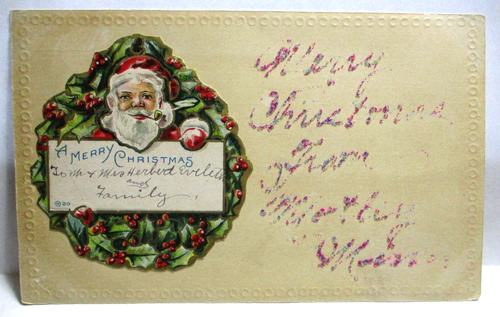 A MERRY CHRISTMAS
To Mr & Mrs Herbert Eveleth
and
Family
Merry
Christmas
From
Morley